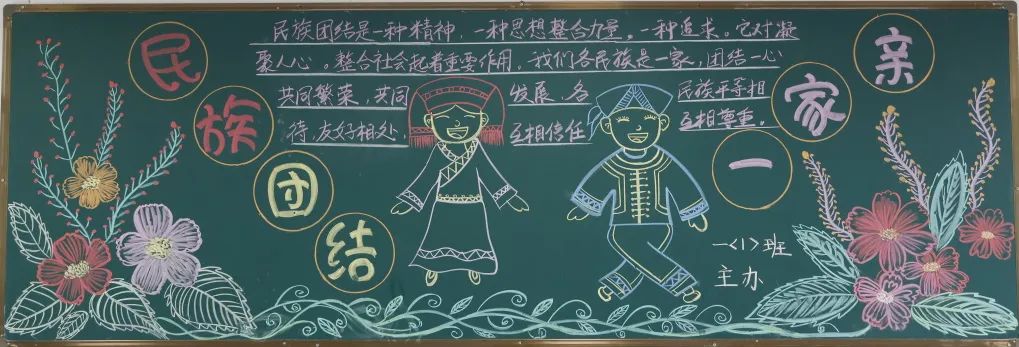 民族团结一家亲
民族团结是一种精神，一种思想整合力量。一种追求。它对凝
聚人心。整合社会起着重要作用。我们各民族是一家，团结一心
共同繁荣，共同发展，各民族平等相
待，友好相处，互相信任互相尊重。
一<1>班
主办